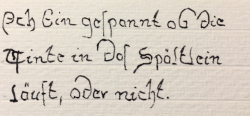 Ich bin gespannt ob die
Tinte in das Spältlein
läuft, oder nicht.